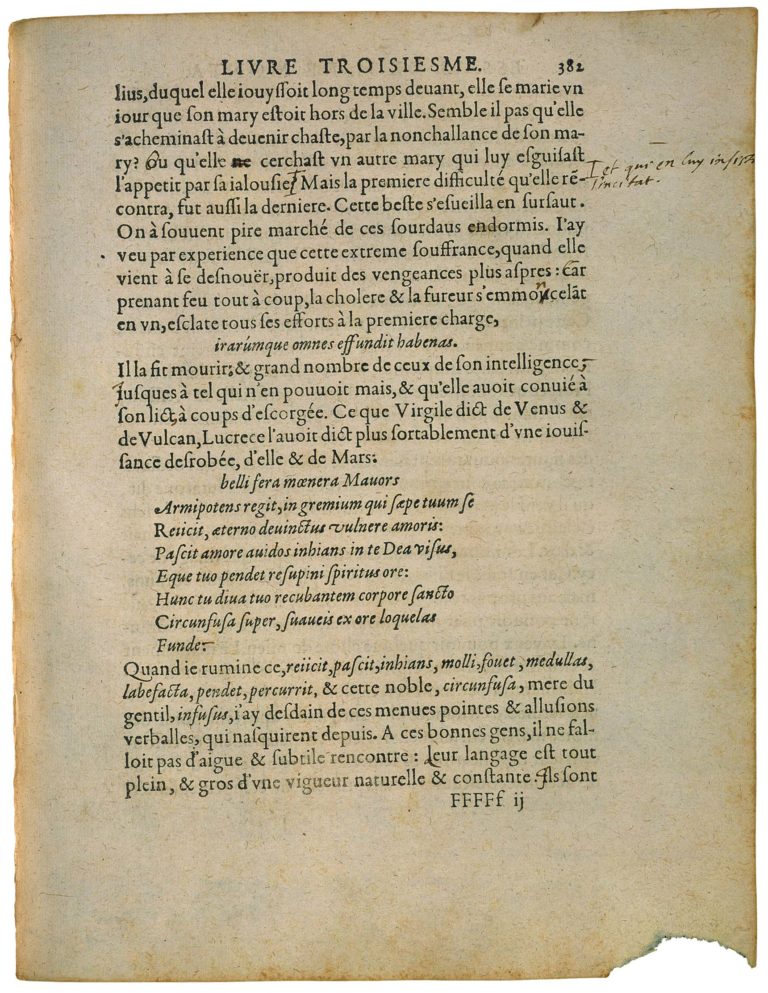 LIVRE TROISIESME. 382
lius, duquel elle iouyſſoit long temps deuant, elle ſe marie vn
iour que ſon mary eſtoit hors de la ville. Semble il pas qu'elle
s'acheminaſt à deuenir chaſte, par la nonchallance de ſon ma-
ry? Ou qu'elle ne cerchaſt vn autre mary qui luy eſguiſaſt
l'appetit par ſa ialouſie? Mais la premiere difficulté qu'elle rē-
et qui en luy
l'incitat.
contra, fut auſſi la derniere. Cette beſte s'eſueilla en ſurſaut.
On à ſouuent pire marché de ces ſourdaus endormis. I'ay
veu par experience que cette extreme ſouffrance, quand elle
vient à ſe deſnouër, produit des vengeances plus aſpres: Car
prenant feu tout à coup, la cholere & la fureur s'emmoncelāt
en vn, eſclate tous ſes efforts à la premiere charge,
irarúmque omnes effundit habenas.
Il la fit mourir; & grand nombre de ceux de ſon intelligence,
Iuſques à tel qui n'en pouuoit mais, & qu'elle auoit conuié à
ſon lict, à coups d'eſcorgée. Ce que Virgile dict de Venus &
de Vulcan, Lucrece l'auoit dict plus ſortablement d'vne iouiſ-
ſance deſrobée, d'elle & de Mars:
belli fera mœnera Mauors
Armipotens regit, in gremium qui ſæpe tuum ſe
Reiicit, æterno deuinctus vulnere amoris:
Paſcit amore auidos inhians in te Dea viſus,
Eque tuo pendet reſupini ſpiritus ore:
Hunc tu diua tuo recubantem corpore ſancto
Circunfuſa ſuper, ſuaueis ex ore loquelas
Funde.
Quand ie rumine ce, reiicit, paſcit, inhians, molli, fouet, medullas,
labefacta, pendet, percurrit, & cette noble, circunfuſa, mere du
gentil, infuſus, i'ay deſdain de ces menues pointes & alluſions
verballes, qui naſquirent depuis. A ces bonnes gens, il ne fal-
loit pas d'aigue & ſubtile rencontre: Leur langage eſt tout
plein, & gros d'vne vigueur naturelle & conſtante: Ils ſont
FFFFf ij